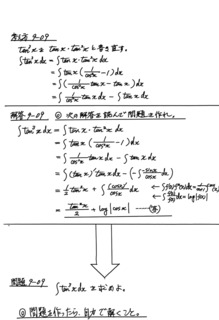 考え方 9-09
tan³x を tanx・tan²x と書き直す。
∫tan³x dx = ∫tanx・tan²x dx
= ∫tanx (1/cos²x − 1) dx
= ∫(1/cos²x tanx − tanx) dx
= ∫1/cos²x tanx dx − ∫tanx dx
解答 9-09 @ 次の解答を読んで問題を作れ。
∫tan³x dx = ∫tanx・tan²x dx
= ∫tanx (1/cos²x − 1) dx
= ∫1/cos²x tanx dx − ∫tanx dx
= ∫(tanx)' tanx dx − (−∫−sinx/cosx dx)
= 1/2 tan²x + ∫(cosx)'/cosx dx
= tan²x/2 + log|cosx| ……(答)
問題 9-09
∫tan³x dx を求めよ。
@ 問題を作ったら、自力で解くこと。